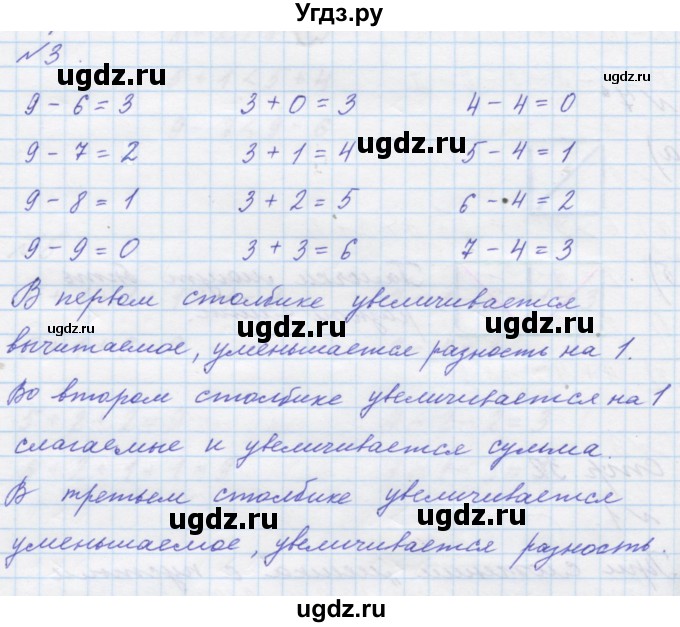 Угдз.ру
№3
9 - 6 = 3   3 + 0 = 3   4 - 4 = 0
9 - 7 = 2   3 + 1 = 4   5 - 4 = 1
9 - 8 = 1   3 + 2 = 5   6 - 4 = 2
9 - 9 = 0   3 + 3 = 6   7 - 4 = 3
В первом столбике увеличивается
вычитаемое, уменьшается разность на 1.
Во втором столбике увеличивается на 1
слагаемые и увеличивается сумма.
В третьем столбике увеличивается
уменьшаемое, увеличивается разность.
ugdz.ru
ugdz.ru
ugdz.ru
ugdz.ru
ugdz.ru
ugdz.ru
ugdz.ru
ugdz.ru
ugdz.ru
ugdz.ru